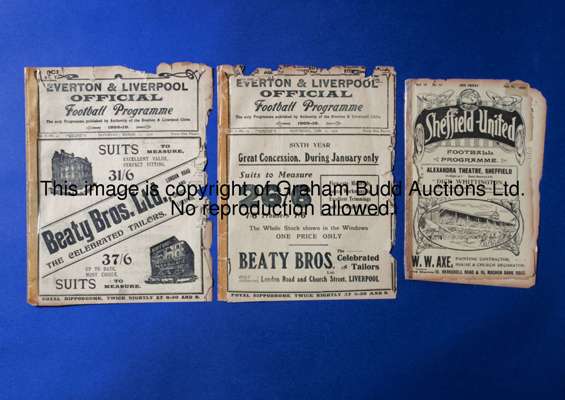 EVERTON & LIVERPOOL
OFFICIAL
Football Programme
The only Programme published by Authority of the Everton & Liverpool Clubs
1909-10.
SUITS TO MEASURE.
EXCELLENT VALUE,
PERFECT FITTING.
31/6
Beaty Bros. Ltd.
LONDON ROAD
THE CELEBRATED TAILORS,
37/6
UP TO DATE,
MOST CHOICE.
SUITS TO MEASURE.
ROYAL HIPPODROME, TWICE NIGHTLY AT 6-50 AND 9.
EVERTON & LIVERPOOL
OFFICIAL
Football Programme
The only Programme published by Authority of the Everton & Liverpool Clubs
1909-10.
SIXTH YEAR
Great Concession. During January only
Suits to Measure
25/6
Trimmings
The Whole Stock shown in the Windows
ONE PRICE ONLY
BEATY BROS. The Celebrated Tailors
London Road and Church Street, LIVERPOOL
ROYAL HIPPODROME, TWICE NIGHTLY AT 6-50 AND 9.
Sheffield United
FOOTBALL
PROGRAMME.
ALEXANDRA THEATRE, SHEFFIELD
DICK WHITTINGTON
W. W. AXE,
PAINTING CONTRACTOR,
HOUSE & CHURCH DECORATOR
This image is copyright of Graham Budd Auctions Ltd.
No reproduction allowed!